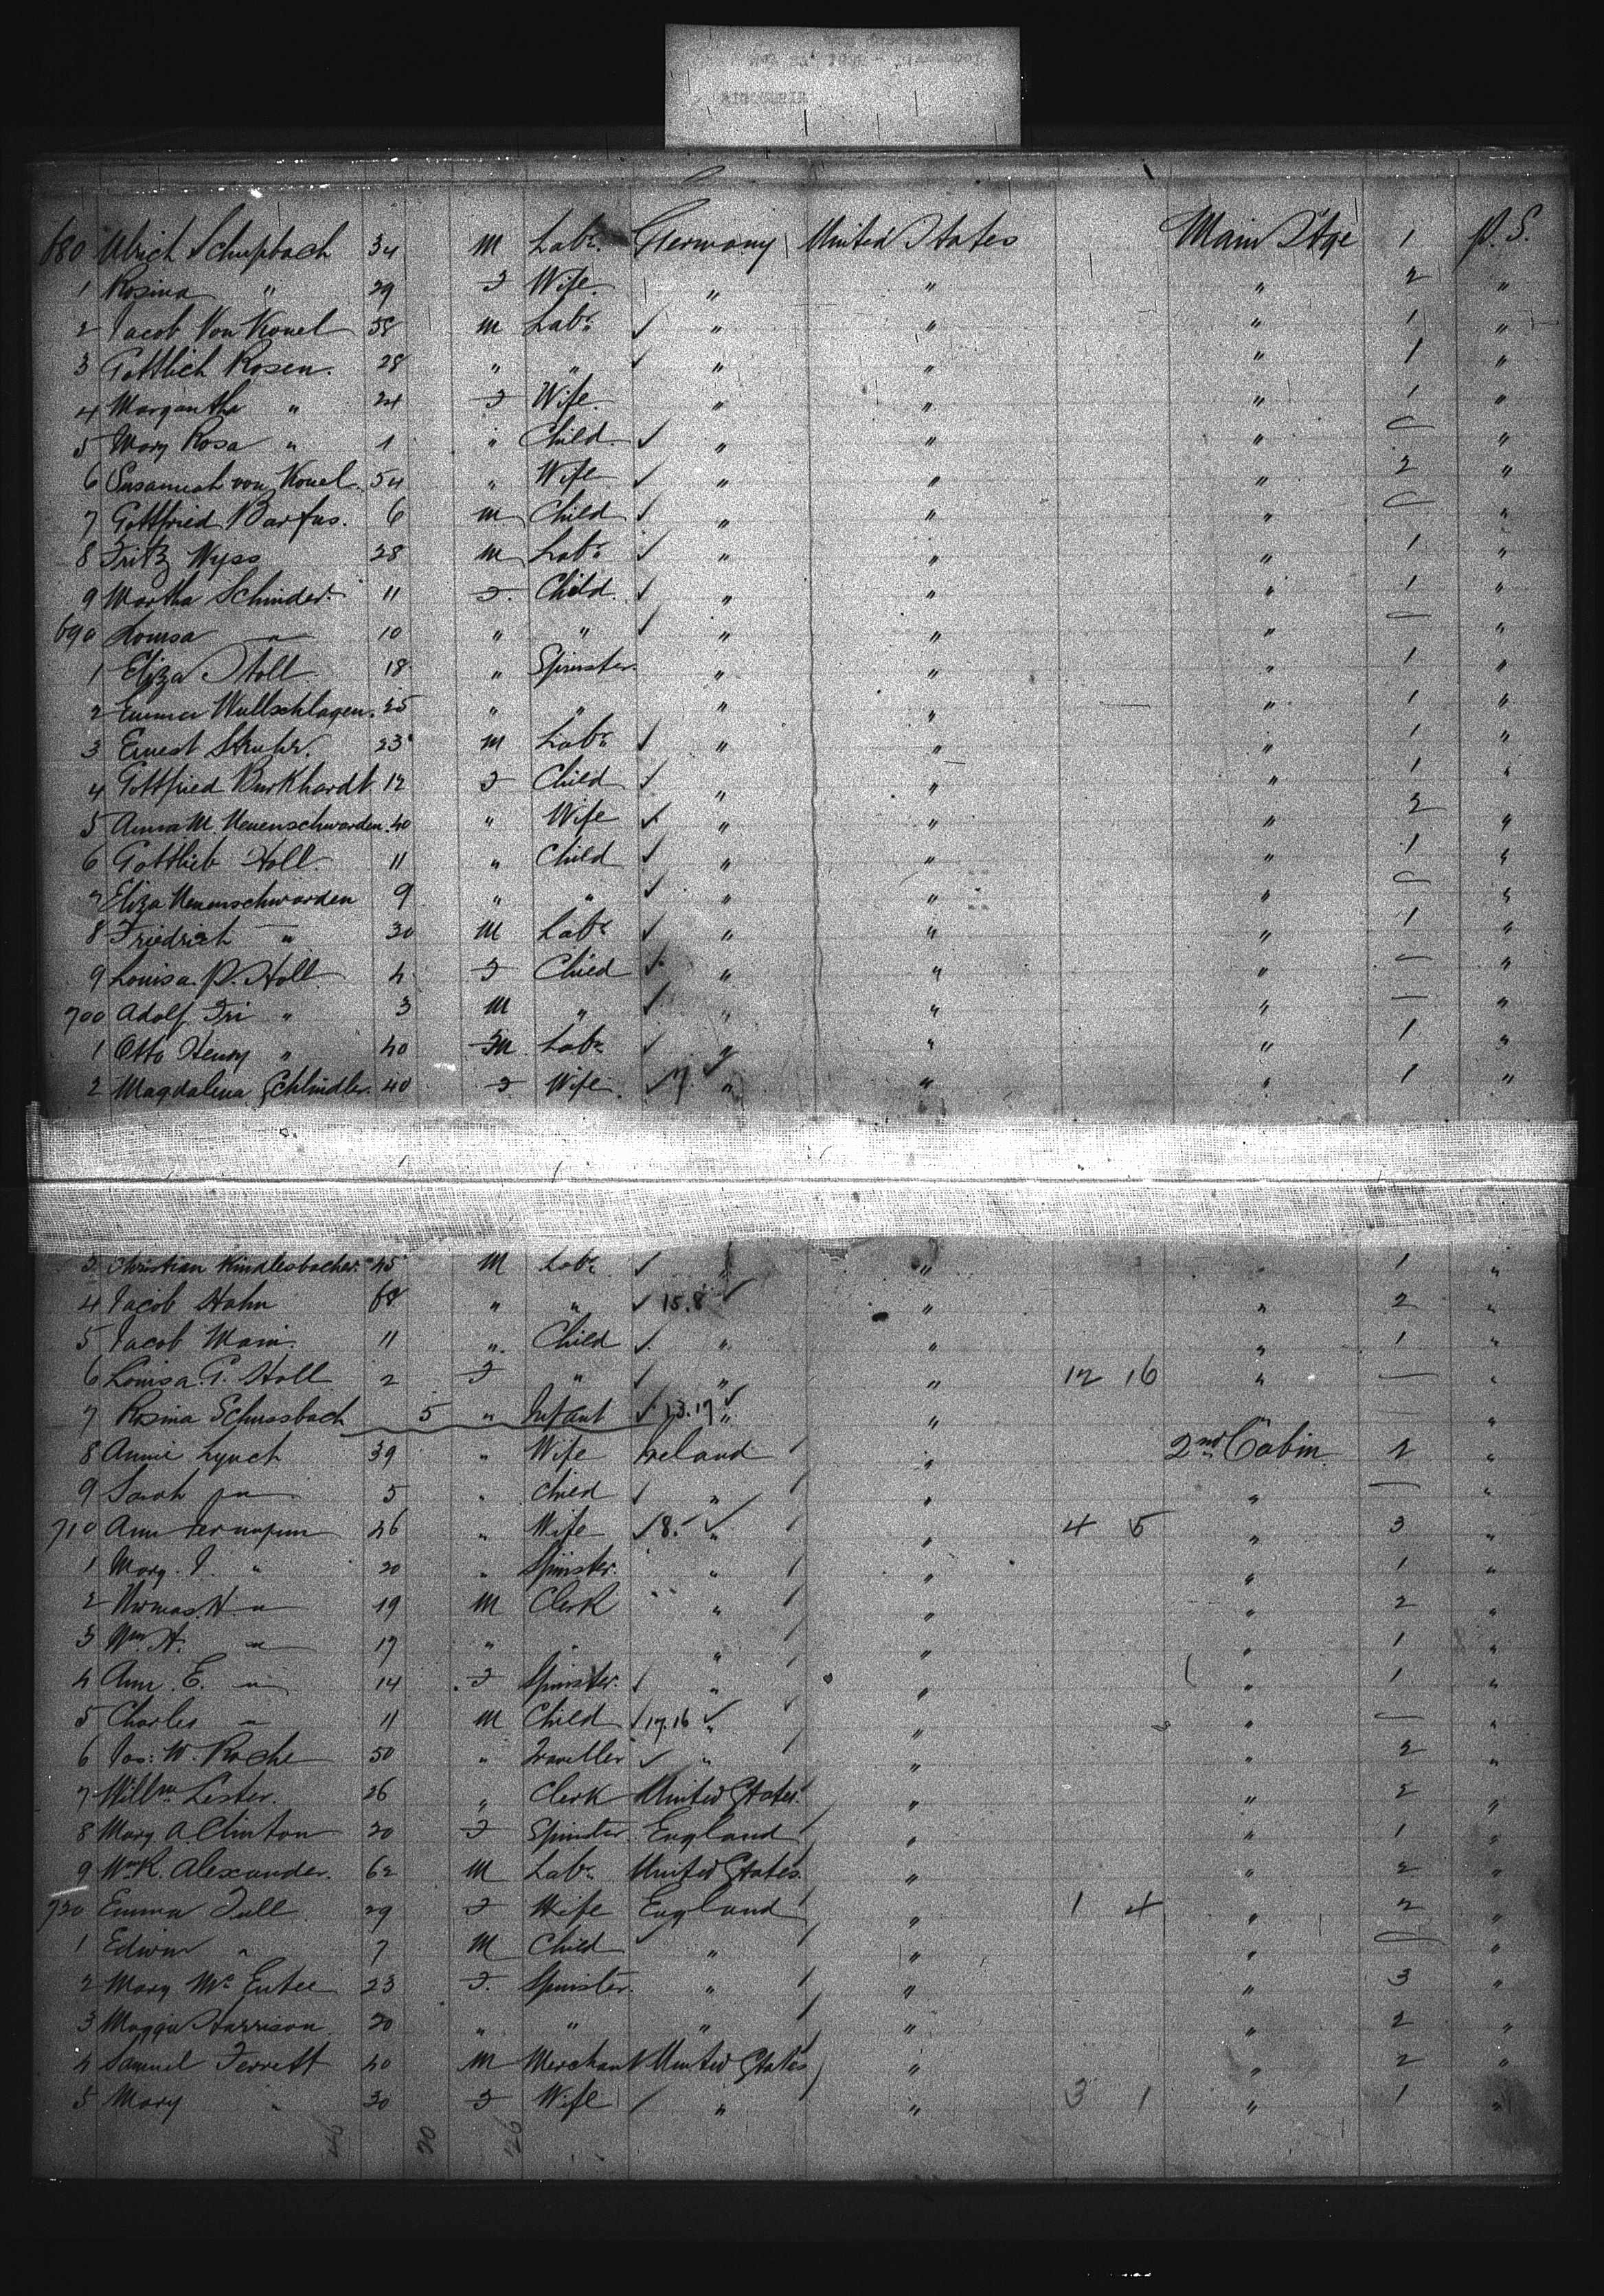 680 Ulrich Schupbach 34 M Labr. Germany United States Main Stge 1 P. S.
1 Rosina " 29 F Wife. " " " 2 "
2 Jacob Von Konel 58 M Labr. ✓ " " " 1 "
3 Gottlieb Rosen. 28 " " ✓ " " " 1 "
4 Margantha " 24 F Wife. " " " 1 "
5 Mary Rosa " 1 " Child ✓ " " " — "
6 Susannah von Konel 54 " Wife ✓ " " " 2 "
7 Gottfried Barfus. 6 M Child ✓ " " " — "
8 Fritz Wyss 28 M Labr. ✓ " " " 1 "
9 Martha Schinder 11 F. Child. ✓ " " " 1 "
690 Louisa " 10 " " ✓ " " " — "
1 Eliza Stoll 18 " Spinster. " " " 1 "
2 Emma Wullschlagen. 25 " " " " " 1 "
3 Ernest 23 M Labr. ✓ " " " 1 "
4 Gottfried Burkhardt 12 F Child ✓ " " " 1 "
5 Anna M. Neuenschwarden. 40 " Wife ✓ " " " 2 "
6 Gottlieb Stoll 11 " Child ✓ " " " 1 "
7 Eliza Neuenschwarden 9 " " ✓ " " " — "
8 Friedrich " 30 M Labr. ✓ " " " 1 "
9 Louisa. P. Stoll 4 F Child ✓ " " " — "
700 Adolf Fri " 3 M " ✓ " " " — "
1 Otto Henry " 40 M Labr. ✓ " " " 1 "
2 Magdalena Schlindler. 40 F. Wife. ✓ 7 ✓ " " " 1 "
3 Christian Kindlesbacher. 45 M Labr. ✓ " " " 1 "
4 Jacob Hahn 68 " " ✓ 15.8 ✓ " " 2 "
5 Jacob Marri. 11 " Child ✓ " " " 1 "
6 Louisa. G. Stoll 2 F " ✓ " " 12 16 " — "
7 Rosina Schussbach 5 " Infant ✓ 13.17 ✓ " " "
8 Annie Lynch 39 " Wife Ireland " 2nd Cabin 2 "
9 Sarah " 5 " Child ✓ " " " — "
710 Ann 46 " Wife ✓ 8. ✓ " " 4 5 " 3 "
1 Mary. J. " 20 " Spinster. " " " 1 "
2 Thomas. H " 19 M Clerk " " " 2 "
3 Wm A. " 17 " " " " " 1 "
4 Ann. E. " 14 F Spinster. ✓ " " " 1 "
5 Charles " 11 M Child ✓ 17.16 ✓ " " " — "
6 Jas: W. Roche 50 " Traveller ✓ " " " 2 "
7 Willm Lester. 26 " Clerk United States. " " 2 "
8 Mary A. Clinton 20 F Spinster. England " " 1 "
9 Wm R. Alexander. 62 M Labr. United States. " " 2 "
720 Emma Tull 29 F Wife England " 1 4 " 2 "
1 Edwin " 7 M Child " " " — "
2 Mary Mc Entee 23 F. Spinster. " " " 3 "
3 Maggie Harrison 20 " " " " " 2 "
4 Samuel Ferrett 40 M Merchant United States " " 2 "
5 Mary " 30 F Wife " " 3 1 " 1 "
20 26